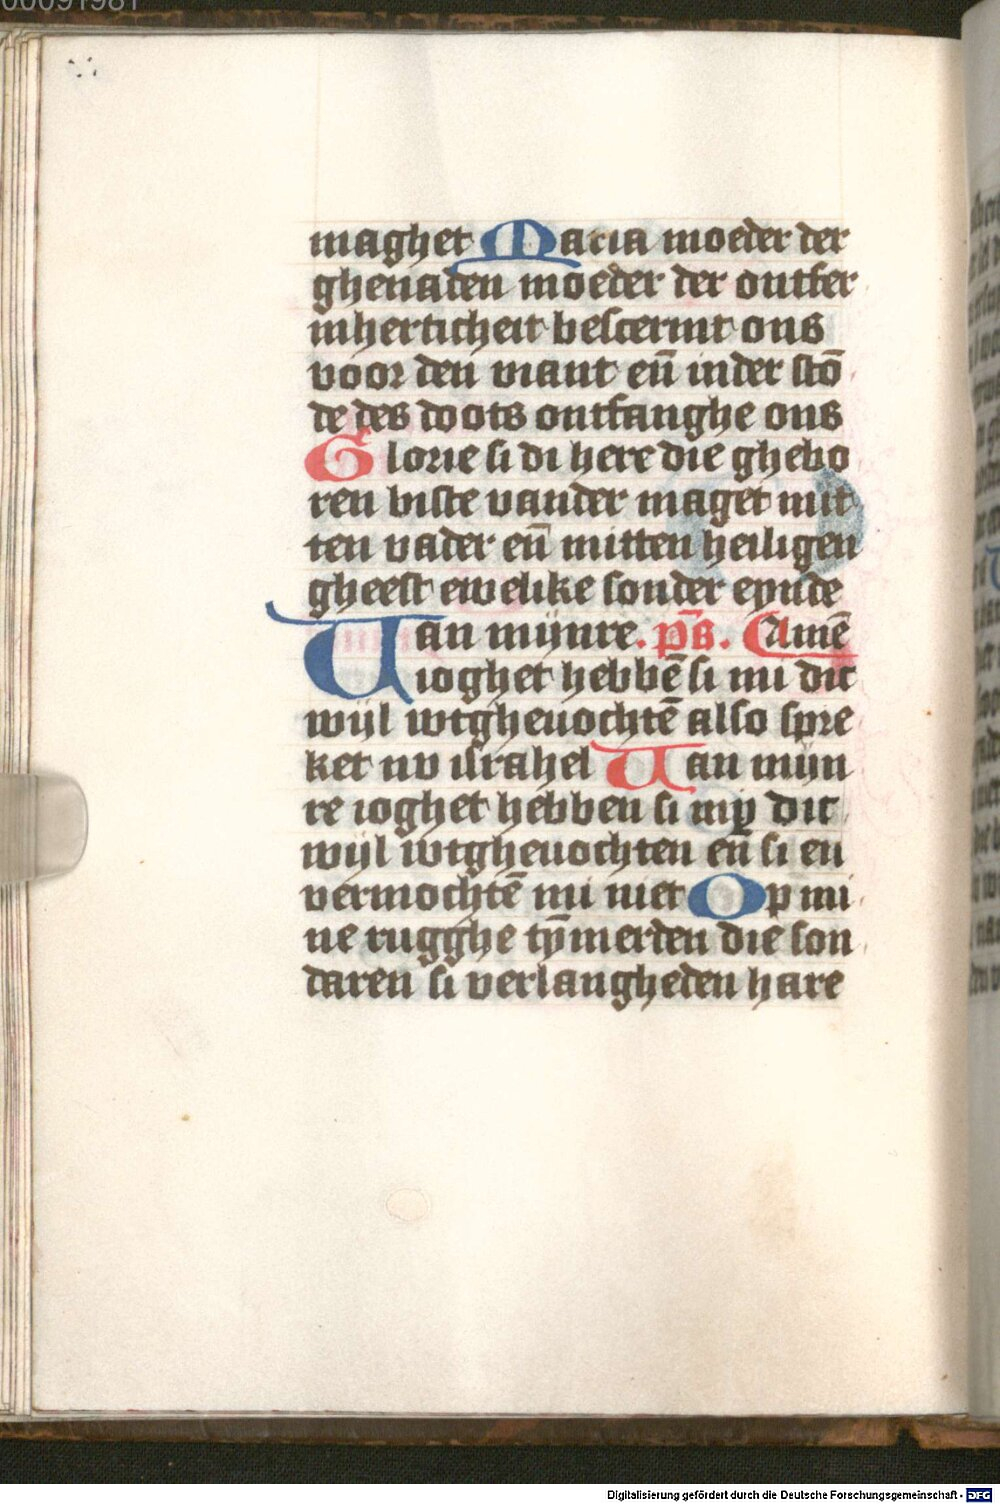 00091981
maghet Maria moeder der
ghenaden moeder der ontfer
mherticheit bescermt ons
voor den viant en̄ inder stō
de des doots ontfanghe ons
Glorie si di here die ghebo
ren biste vander maget mit
ten vader en̄ mitten heiligen
gheest ewelike sonder eynde
Van mijnre. ps̄. Amē
ioghet hebbē si mi dic
wijl wtgheuochtē also spre
ket nv israhel Van mijn
re ioghet hebben si my dic
wijl wtgheuochten en̄ si en
vermochtē mi niet Op mi
ne rugghe tȳmerden die son
daren si verlangheden hare
Digitalisierung gefördert durch die Deutsche Forschungsgemeinschaft - DFG